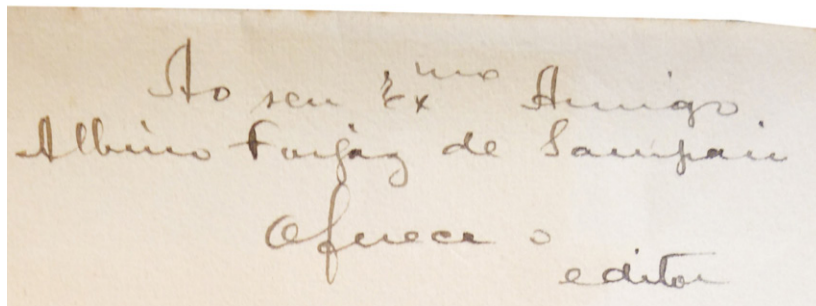 Ao seu Exmo Amigo
Albino Forjaz de Sampaio
Oferece o
editor